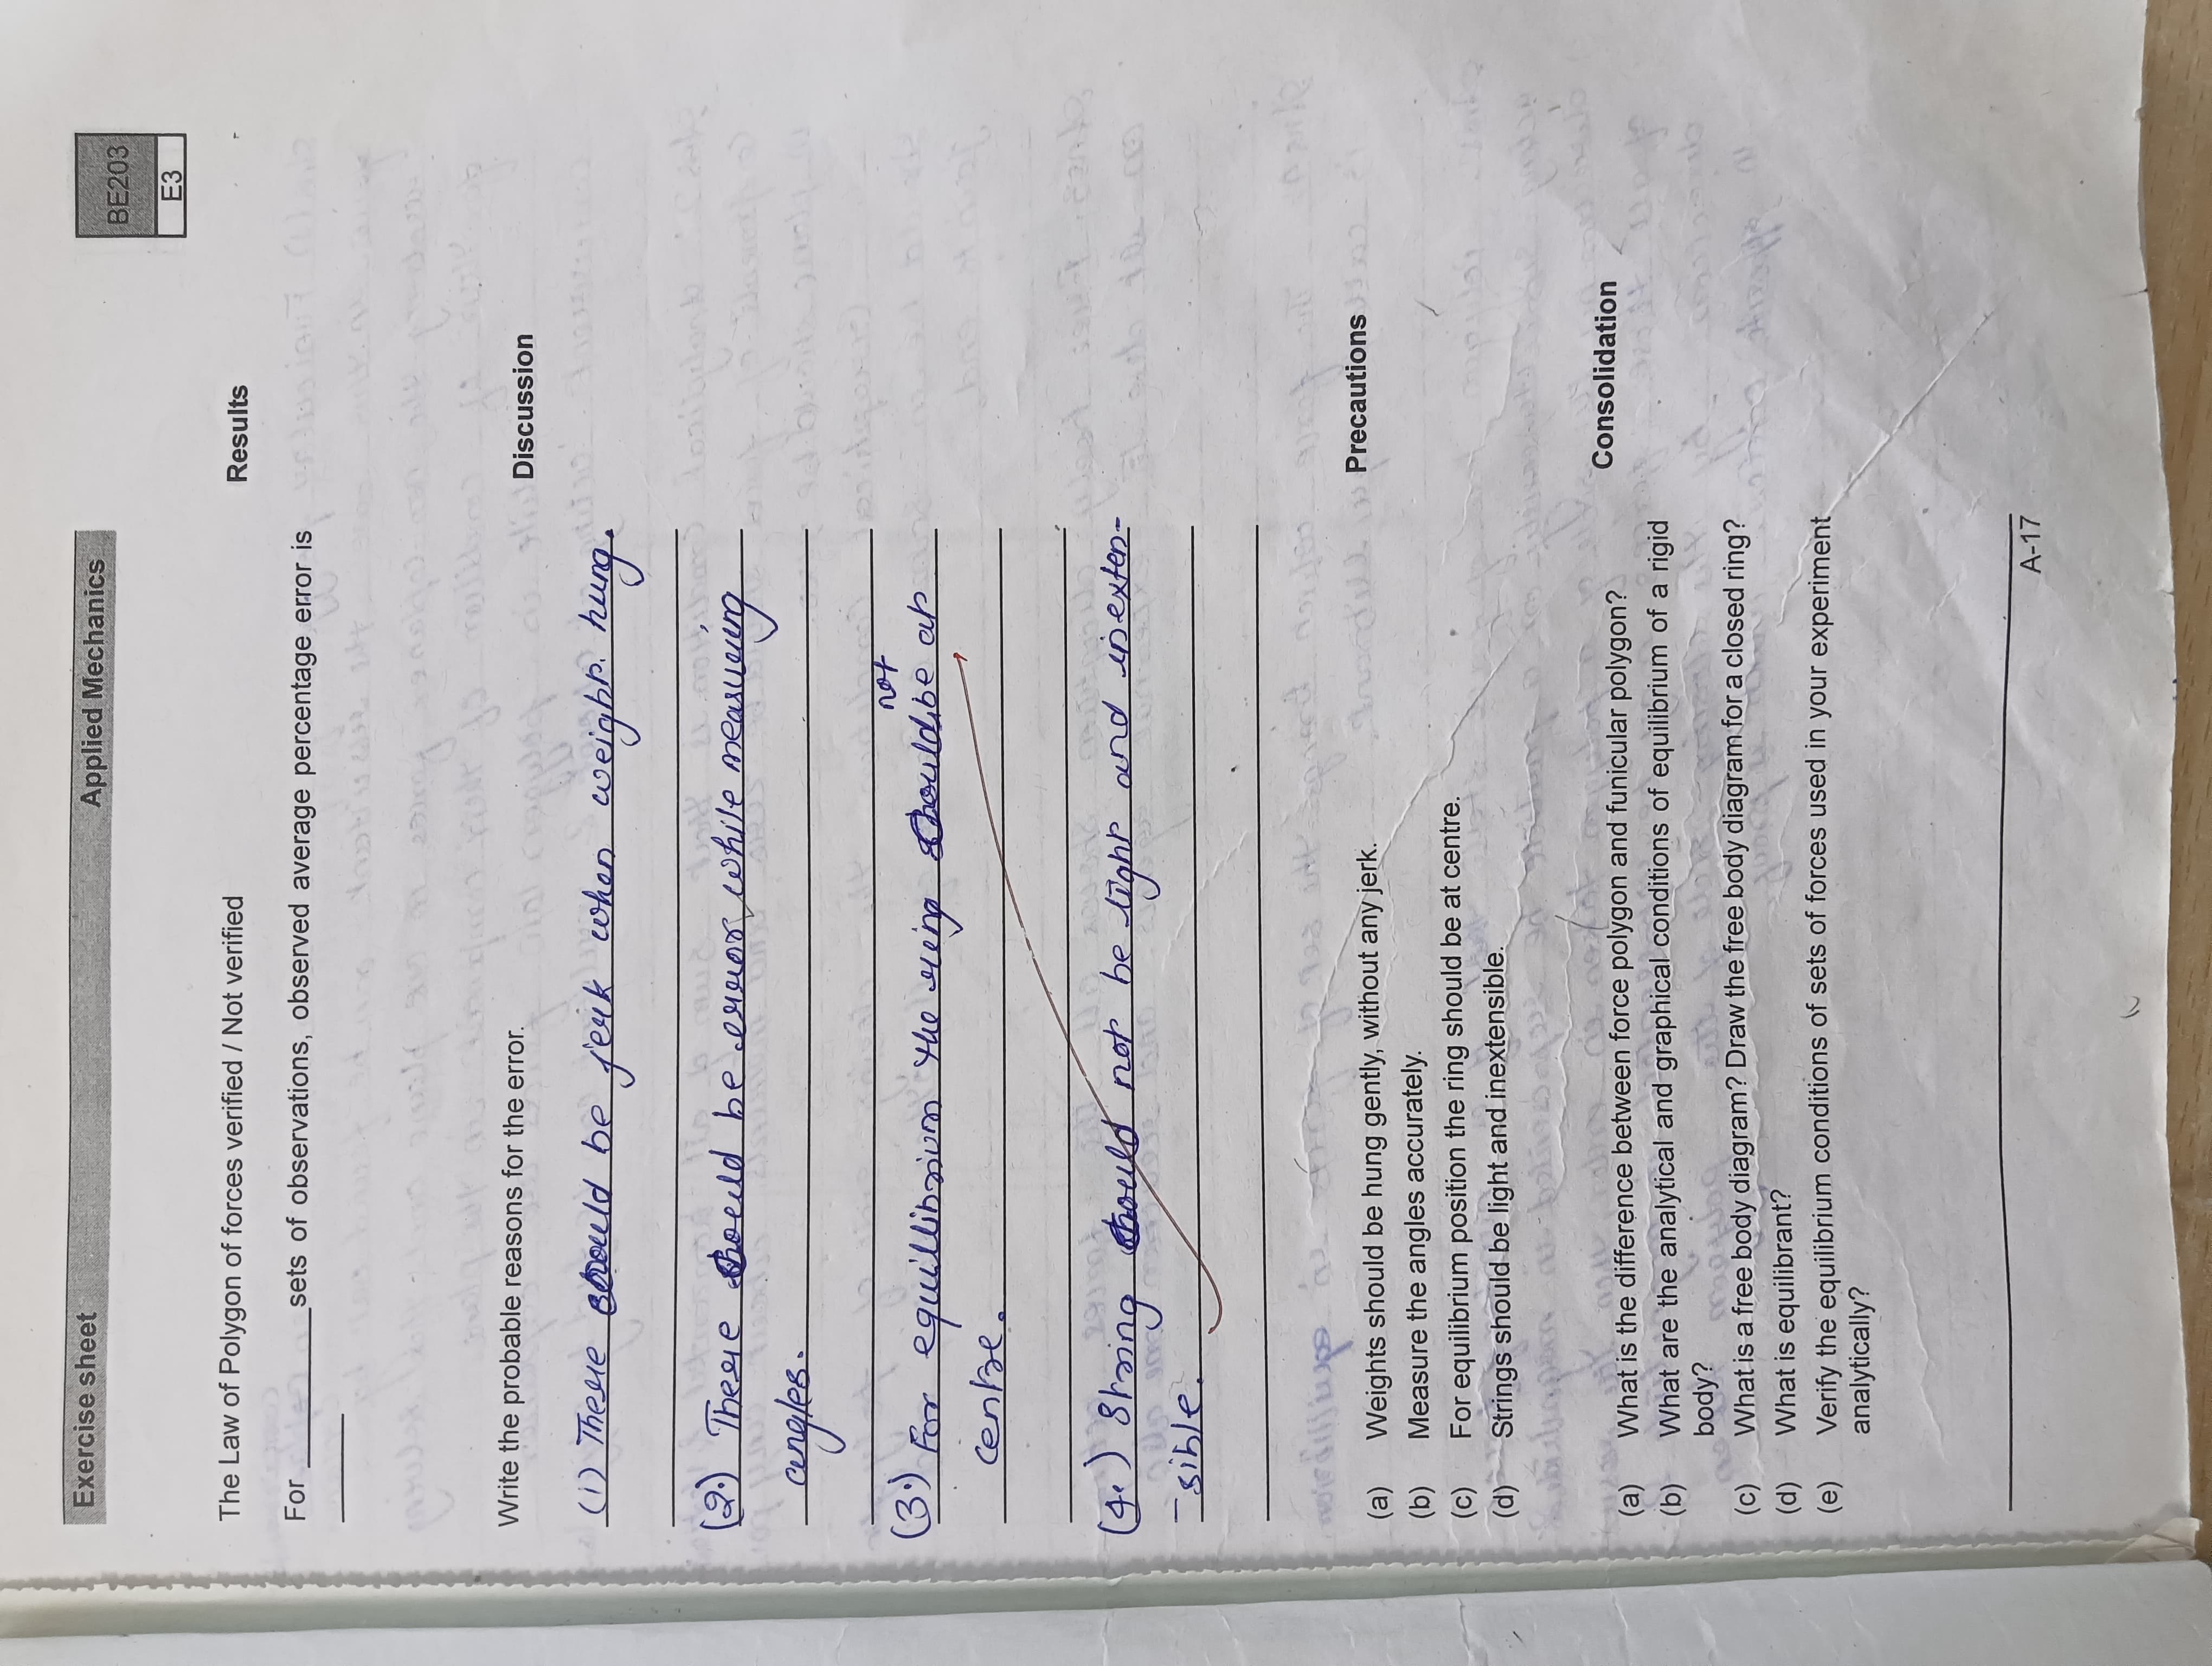 Exercise sheet
Applied Mechanics
BE203
E3
The Law of Polygon of forces verified / Not verified
Results
For _________ sets of observations, observed average percentage error is
______
Write the probable reasons for the error.
Discussion
(1) There should be jerk when weight. hung.
(2.) There should be error while measuring
angles.
not
(3.) For equillibrium the ring should be at
centre.
(4.) String should not be light and inexten-
-sible.
Precautions
(a) Weights should be hung gently, without any jerk.
(b) Measure the angles accurately.
(c) For equilibrium position the ring should be at centre.
(d) Strings should be light and inextensible.
Consolidation
(a) What is the difference between force polygon and funicular polygon?
(b) What are the analytical and graphical conditions of equilibrium of a rigid
body?
(c) What is a free body diagram? Draw the free body diagram for a closed ring?
(d) What is equilibrant?
(e) Verify the equilibrium conditions of sets of forces used in your experiment
analytically?
A-17